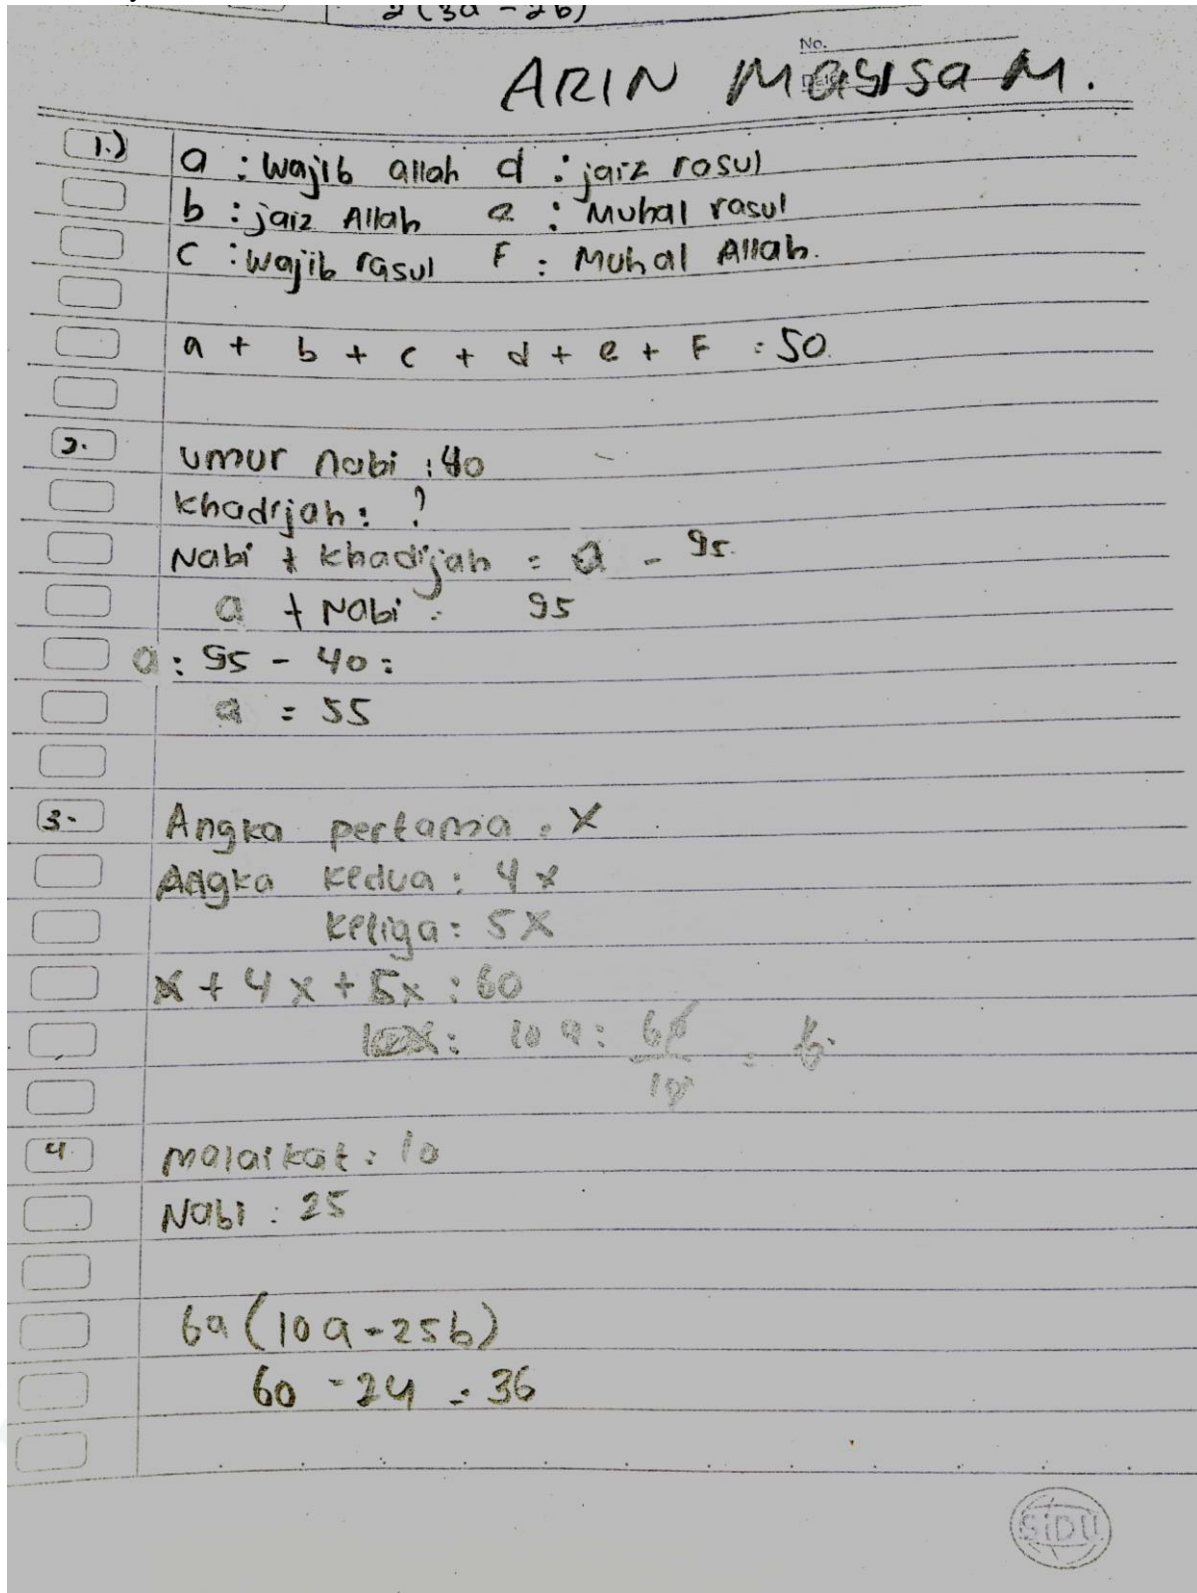 2 (3a - 2b)
No.
ARIN Maysisa M.
1.) a : wajib allah d : jaiz rosul
b : jaiz Allah e : Muhal rasul
c : wajib rasul F : Muhal Allah.
a + b + c + d + e + F : 50.
2. umur nabi : 40
Khadijah : ?
Nabi + khadijah = a - 95.
a + Nabi : 95
a : 95 - 40 :
a = 55
3. Angka pertama : X
Angka kedua : 4x
ketiga : 5X
x + 4x + 5x : 60
10x : 10 a : 60/10 = 6.
4. Malaikat : 10
Nabi : 25
6a (10a - 25b)
60 - 24 = 36
SIDU